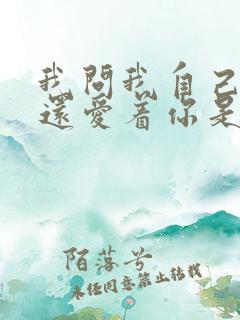 我問我自己
還愛着你是
陌落兮
未经同意禁止转载